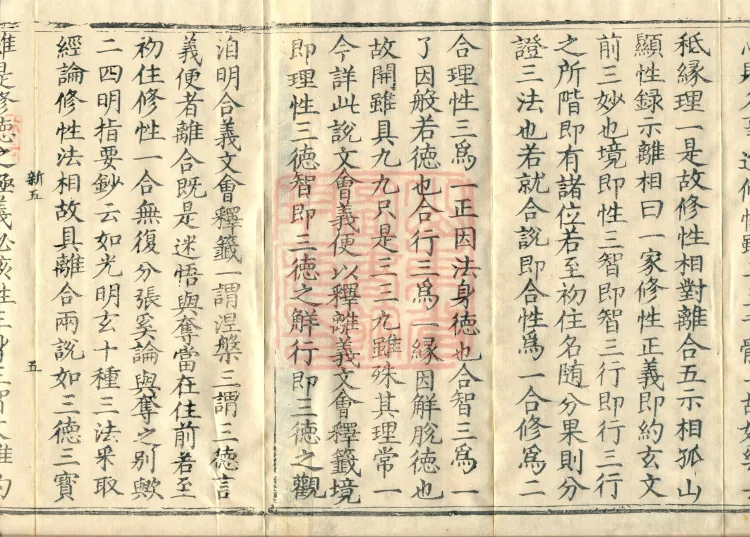 秖縁理一是故修性相對離合五示相孤山
顯性録示離相曰一家修性正義即約玄文
前三妙也境即性三智即智三行即行三行
之所階即有諸位若至初住名随分果則分
證三法也若就合說即合性爲一合修爲二
合理性三爲一正因法身德也合智三爲一
了因般若德也合行三爲一縁因解脫德也
故開雖具九九只是三三九雖殊其理常一
今詳此說文會義便以釋離義文會釋籤境
即理性三德智即三德之解行即三德之觀
洎明合義文會釋籤一謂涅槃三謂三德言
義便者離合既是迷悟與奪當在住前若至
初住修性一合無復分張奚論與奪之别歟
二四明指要鈔云如光明玄十種三法采取
經論修性法相故具離合兩說如三德三寶
新五 五
雖是修德之極義必該性三身三